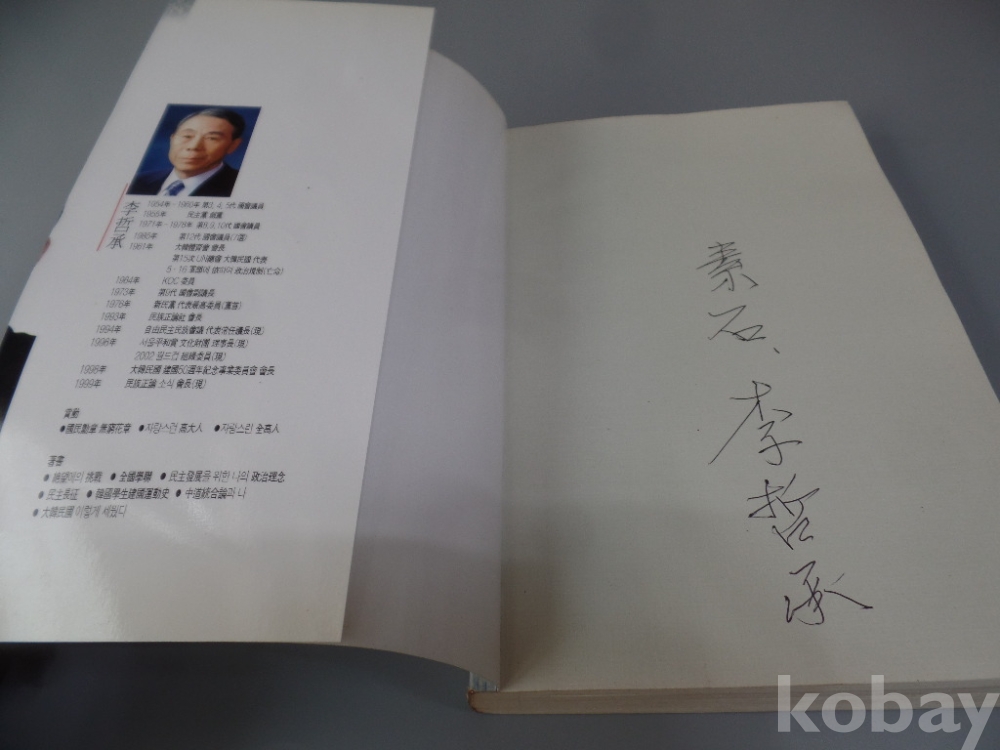 李哲承
1954年~1960年 第3, 4, 5代 國會議員
1955年 民主黨 創黨
1971年~1979年 第8, 9, 10代 國會議員
1985年 第12代 國會議員(7選)
1981年 大韓體育會 會長
第15次 UN總會 大韓民國 代表
5·16 軍園에 의하여 政治規制(亡命)
1964年 KOC 委員
1973年 第9代 國會副議長
1976年 新民黨 代表最高委員(黨首)
1993年 民族正論社 會長
1994年 自由民主民族會議 代表常任議長(現)
1996年 서울平和賞 文化財團 理事長(現)
2002 월드컵 組織委員(現)
1998年 大韓民國 建國50週年紀念事業委員會 會長
1999年 民族正論 소식 會長(現)
賞勳
●國民勳章 無窮花章 ●자랑스런 高大人 ●자랑스런 全高人
著書
● 絶望에의 挑戰 ● 全國學聯 ● 民主發展을 위한 나의 政治理念
● 民主長征 ● 韓國學生建國運動史 ● 中道統合論과 나
● 大韓民國 이렇게 세웠다
素石、
李哲承
kobay